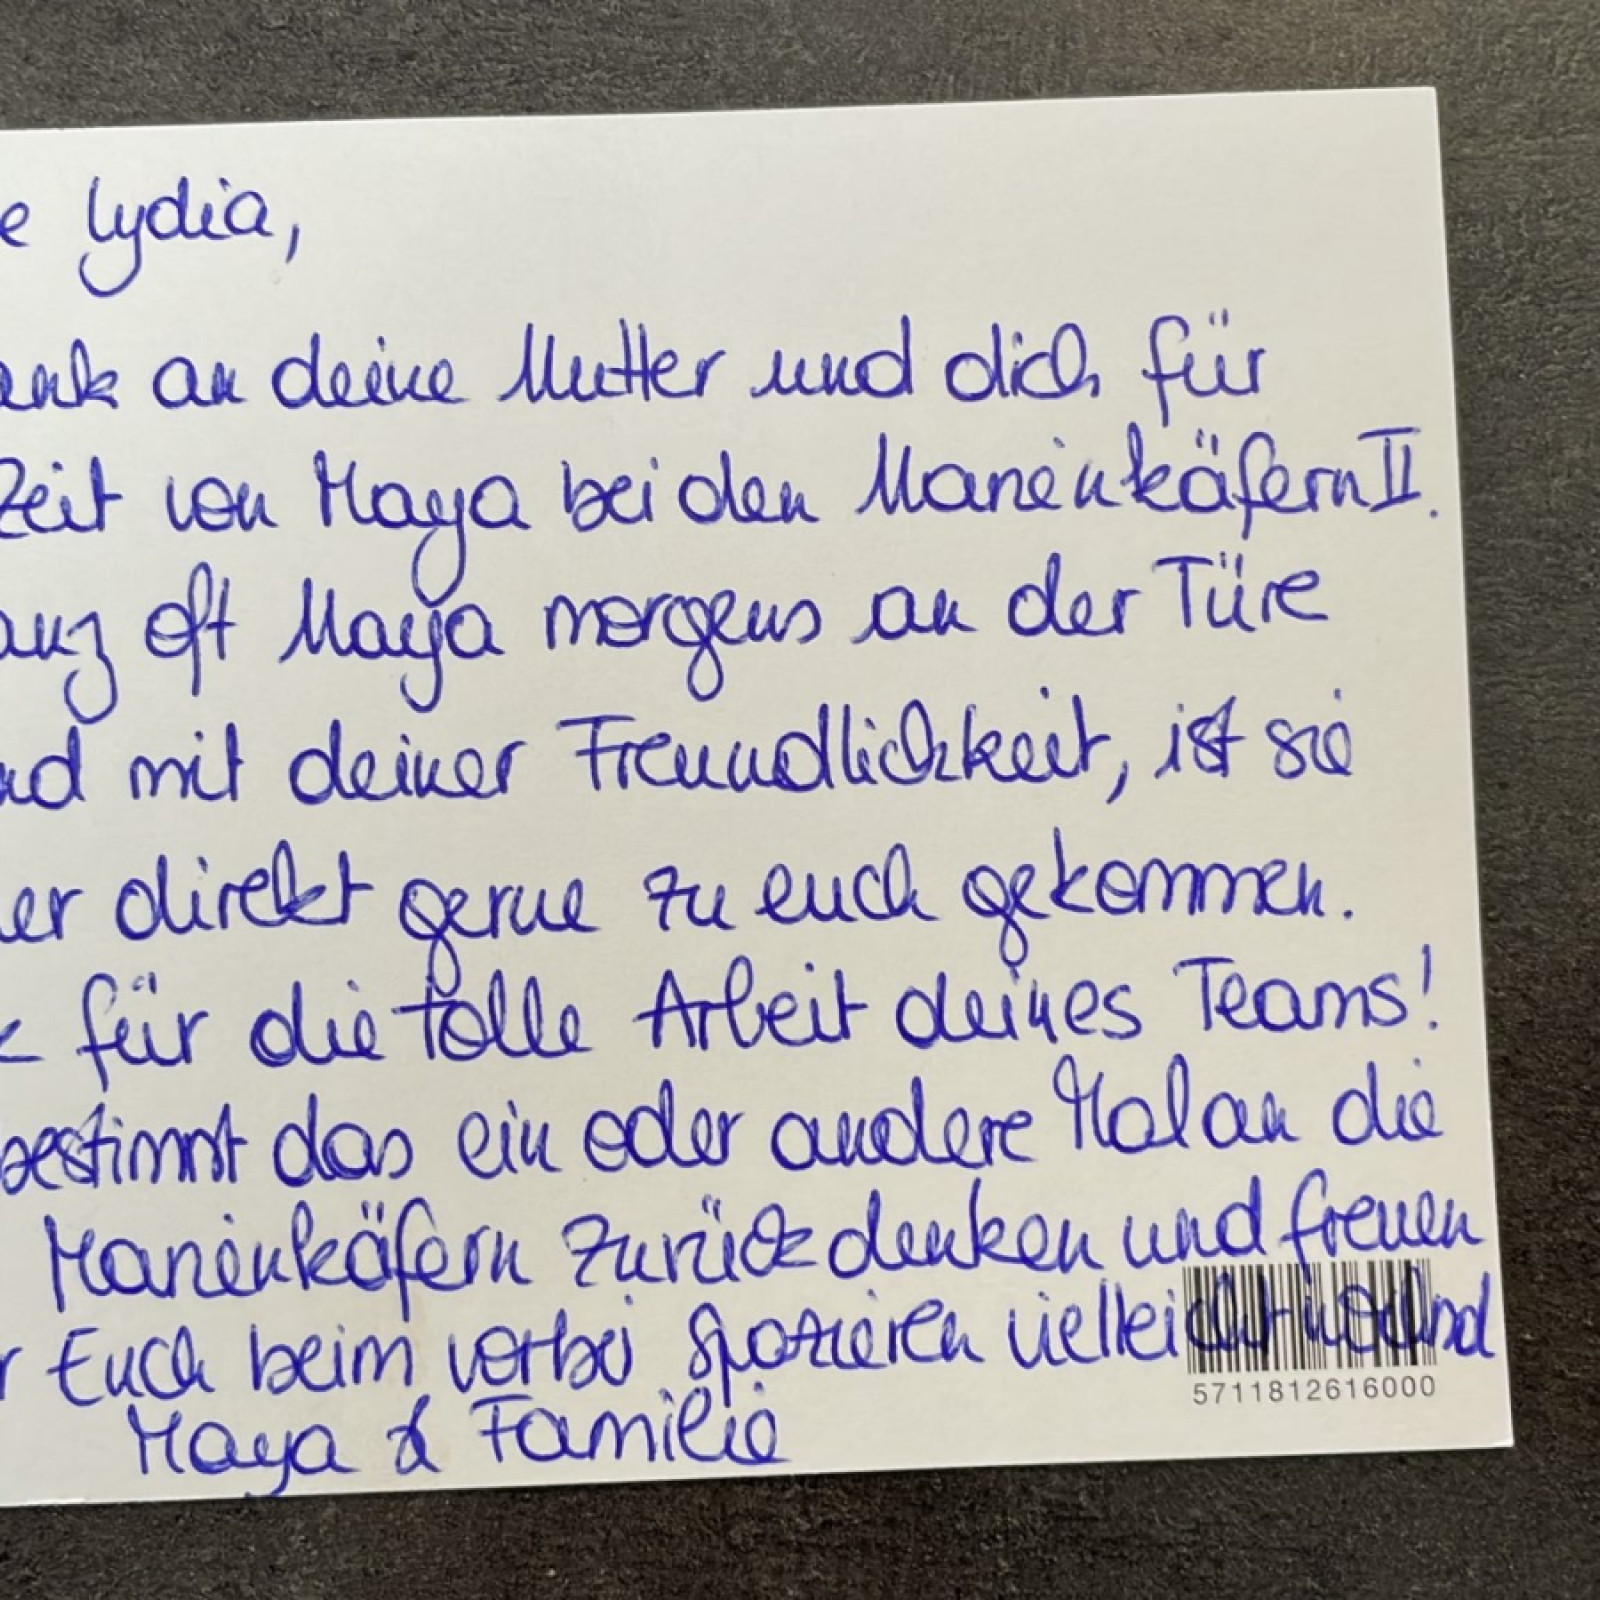 e Lydia,
ank an deine Mutter und dich für
Zeit von Maya bei den Marienkäfern II.
anz oft Maya morgens an der Türe
nd mit deiner Freundlichkeit, ist sie
er direkt gerne zu euch gekommen.
für die tolle Arbeit deines Teams!
bestimmt das ein oder andere Mal an die
Marienkäfern zurückdenken und freuen
r Euch beim vorbei spazieren vielleicht
5711812616000
Maya & Familie